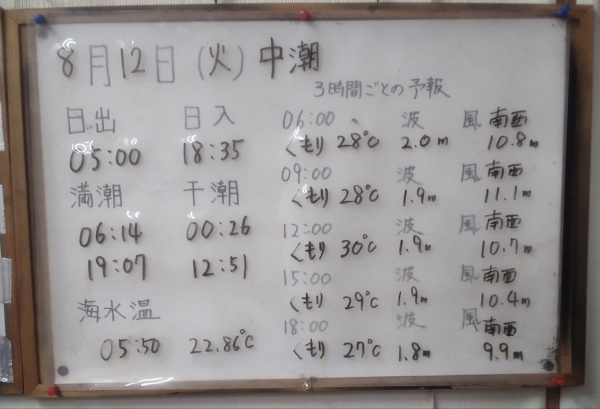 8月12日(火)中潮
3時間ごとの予報
日出 日入
05:00 18:35
満潮 干潮
06:14 00:26
19:07 12:51
海水温
05:50 22.86℃
06:00 波 風 南西
くもり 28℃ 2.0m 10.8m
09:00 波 風 南西
くもり 28℃ 1.9m 11.1m
12:00 波 風 南西
くもり 30℃ 1.9m 10.7m
15:00 波 風 南西
くもり 29℃ 1.9m 10.4m
18:00 波 風 南西
くもり 27℃ 1.8m 9.9m